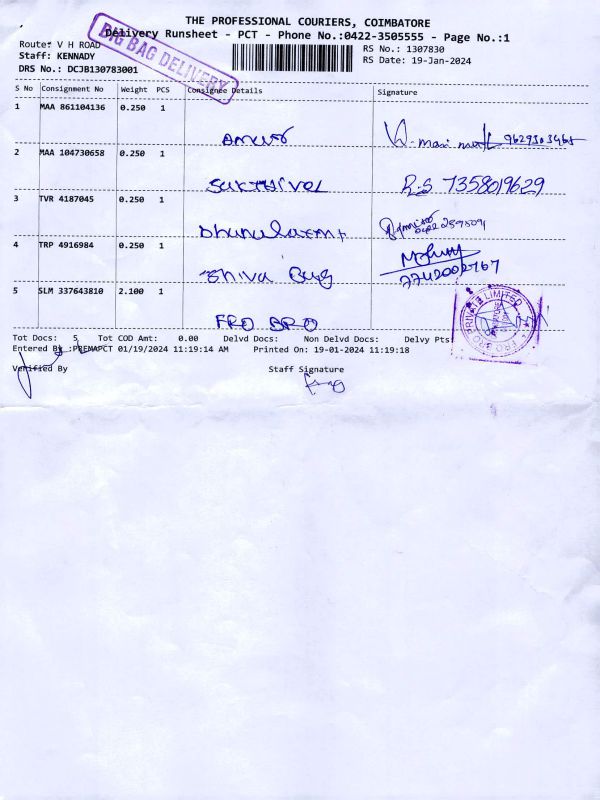 THE PROFESSIONAL COURIERS, COIMBATORE
Delivery Runsheet - PCT - Phone No.:0422-3505555 - Page No.:1
BIG BAG DELIVERY
Route: V H ROAD
RS No.: 1307830
Staff: KENNADY
RS Date: 19-Jan-2024
DRS No.: DCJB130783001
S No Consignment No Weight PCS Consignee Details Signature
1 MAA 861104136 0.250 1
9629303465
2 MAA 104730658 0.250 1
Sakthivel R.S 7358019629
3 TVR 4187045 0.250 1
Dhanulaxmi
4 TRP 4916984 0.250 1
Shiva
7742002767
5 SLM 337643810 2.100 1
FRO BRO
FRO BRO PRIVATE LIMITED
Tot Docs: 5 Tot COD Amt: 0.00 Delvd Docs: Non Delvd Docs: Delvy Pts:
Entered By :PREMAPCT 01/19/2024 11:19:14 AM Printed On: 19-01-2024 11:19:18
Verified By Staff Signature